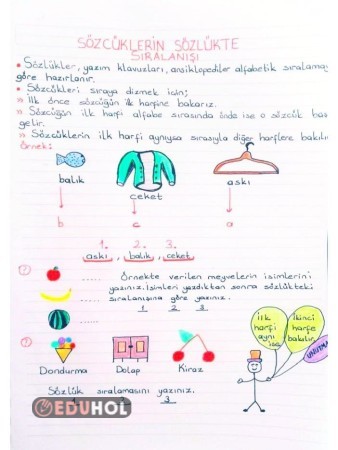 SÖZCÜKLERİN SÖZLÜKTE
SIRALANIŞI
• Sözlükler, yazım klavuzları, ansiklopediler alfabetik sıralamaya
göre hazırlanır.
• Sözcükleri sıraya dizmek için;
» İlk önce sözcüğün ilk harfine bakarız.
» Sözcüğün ilk harfi alfabe sırasında önde ise o sözcük baş
gelir.
» Sözcüklerin ilk harfi aynıysa sırasıyla diğer harflere bakılır
Örnek:
balık ceket askı
b c a
1. 2. 3.
askı, balık, ceket
Örnekte verilen meyvelerin isimlerini
yazınız. İsimleri yazdıktan sonra sözlükteki
sıralanışına göre yazınız.
1 2 3
İlk harfi aynı ise
İkinci harfe bakılır
UNUTMA
Dondurma Dolap Kiraz
Sözlük sıralamasını yazınız.
1 2 3
EDUHOL